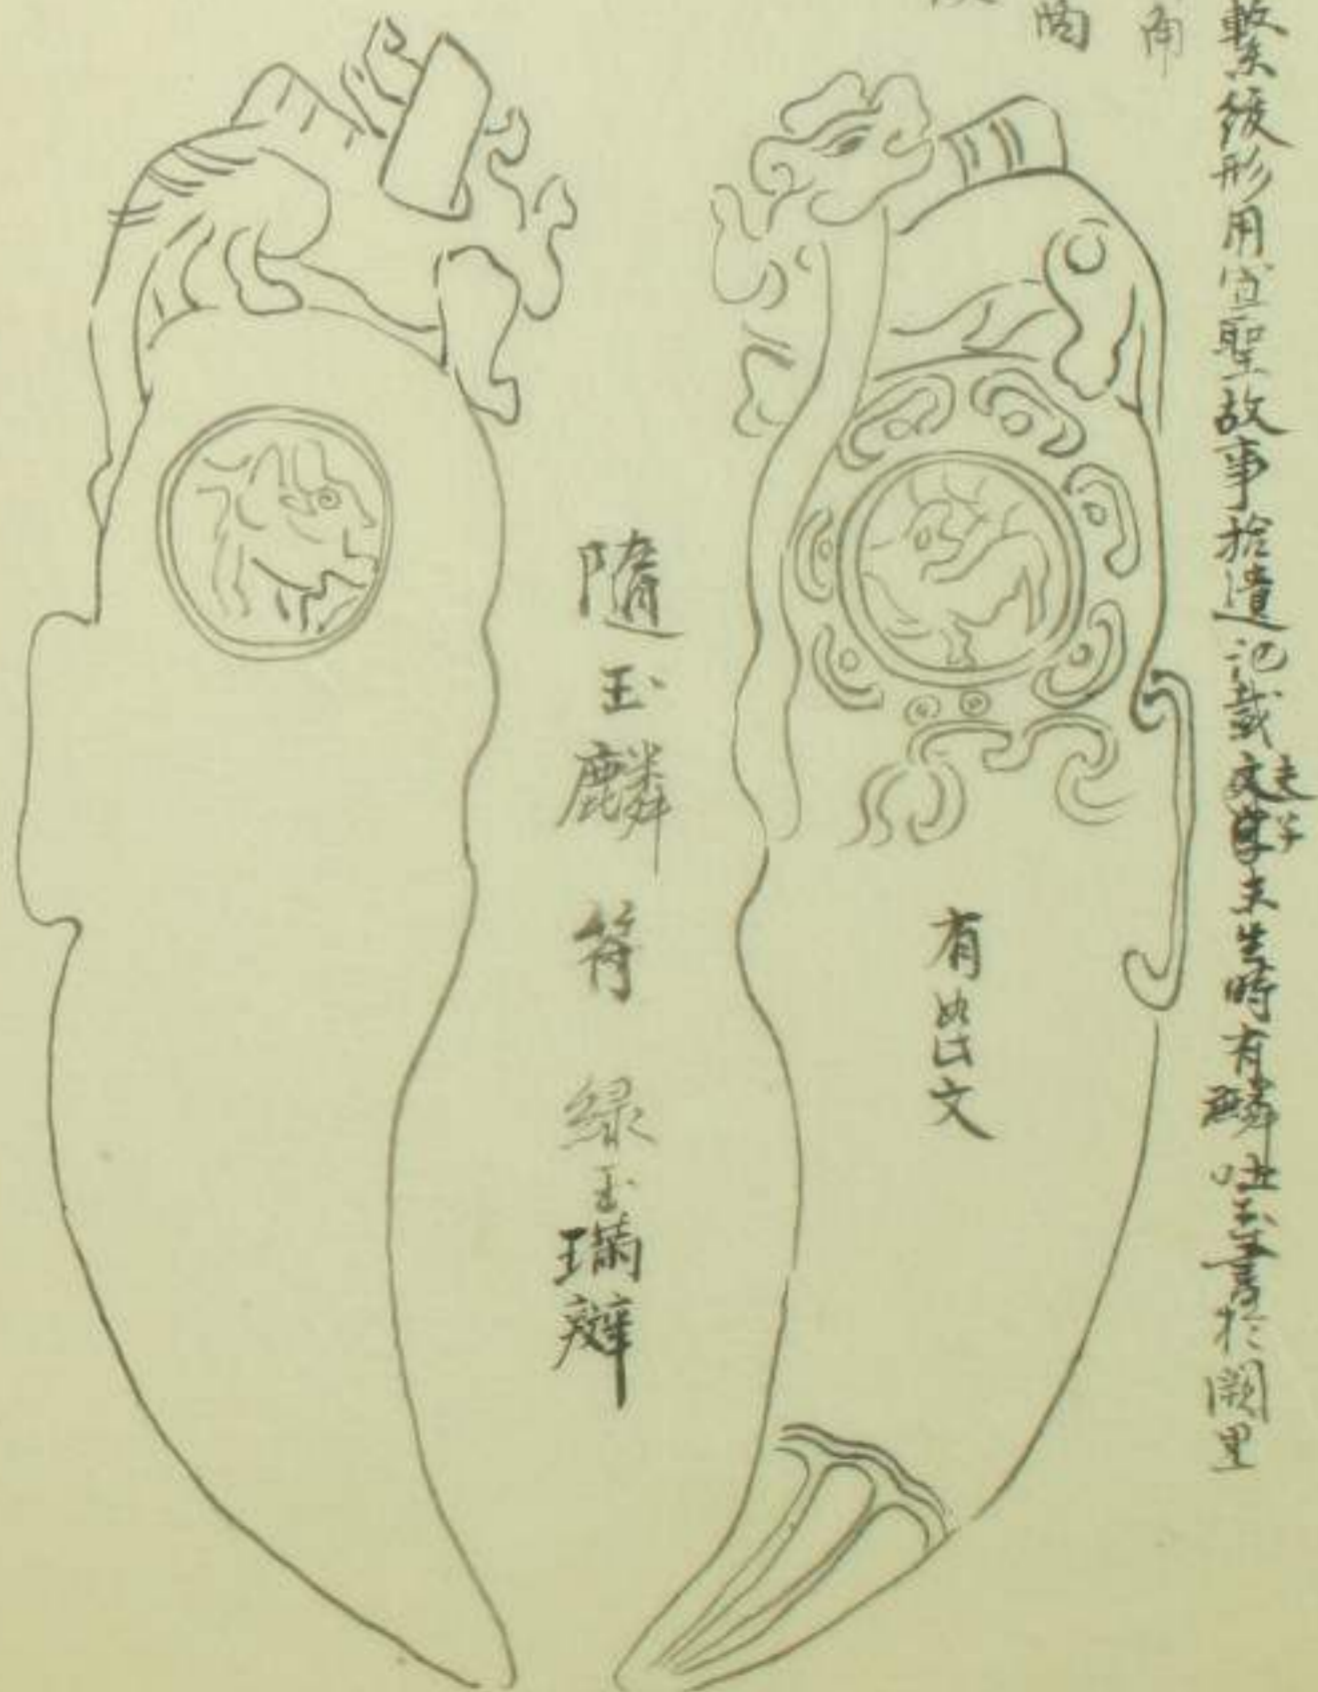 繫綬形用宣聖故事拾遺記載夫子未生時有麟吐玉書於闕里
有此文
隨玉麟符 緑玉璊辨